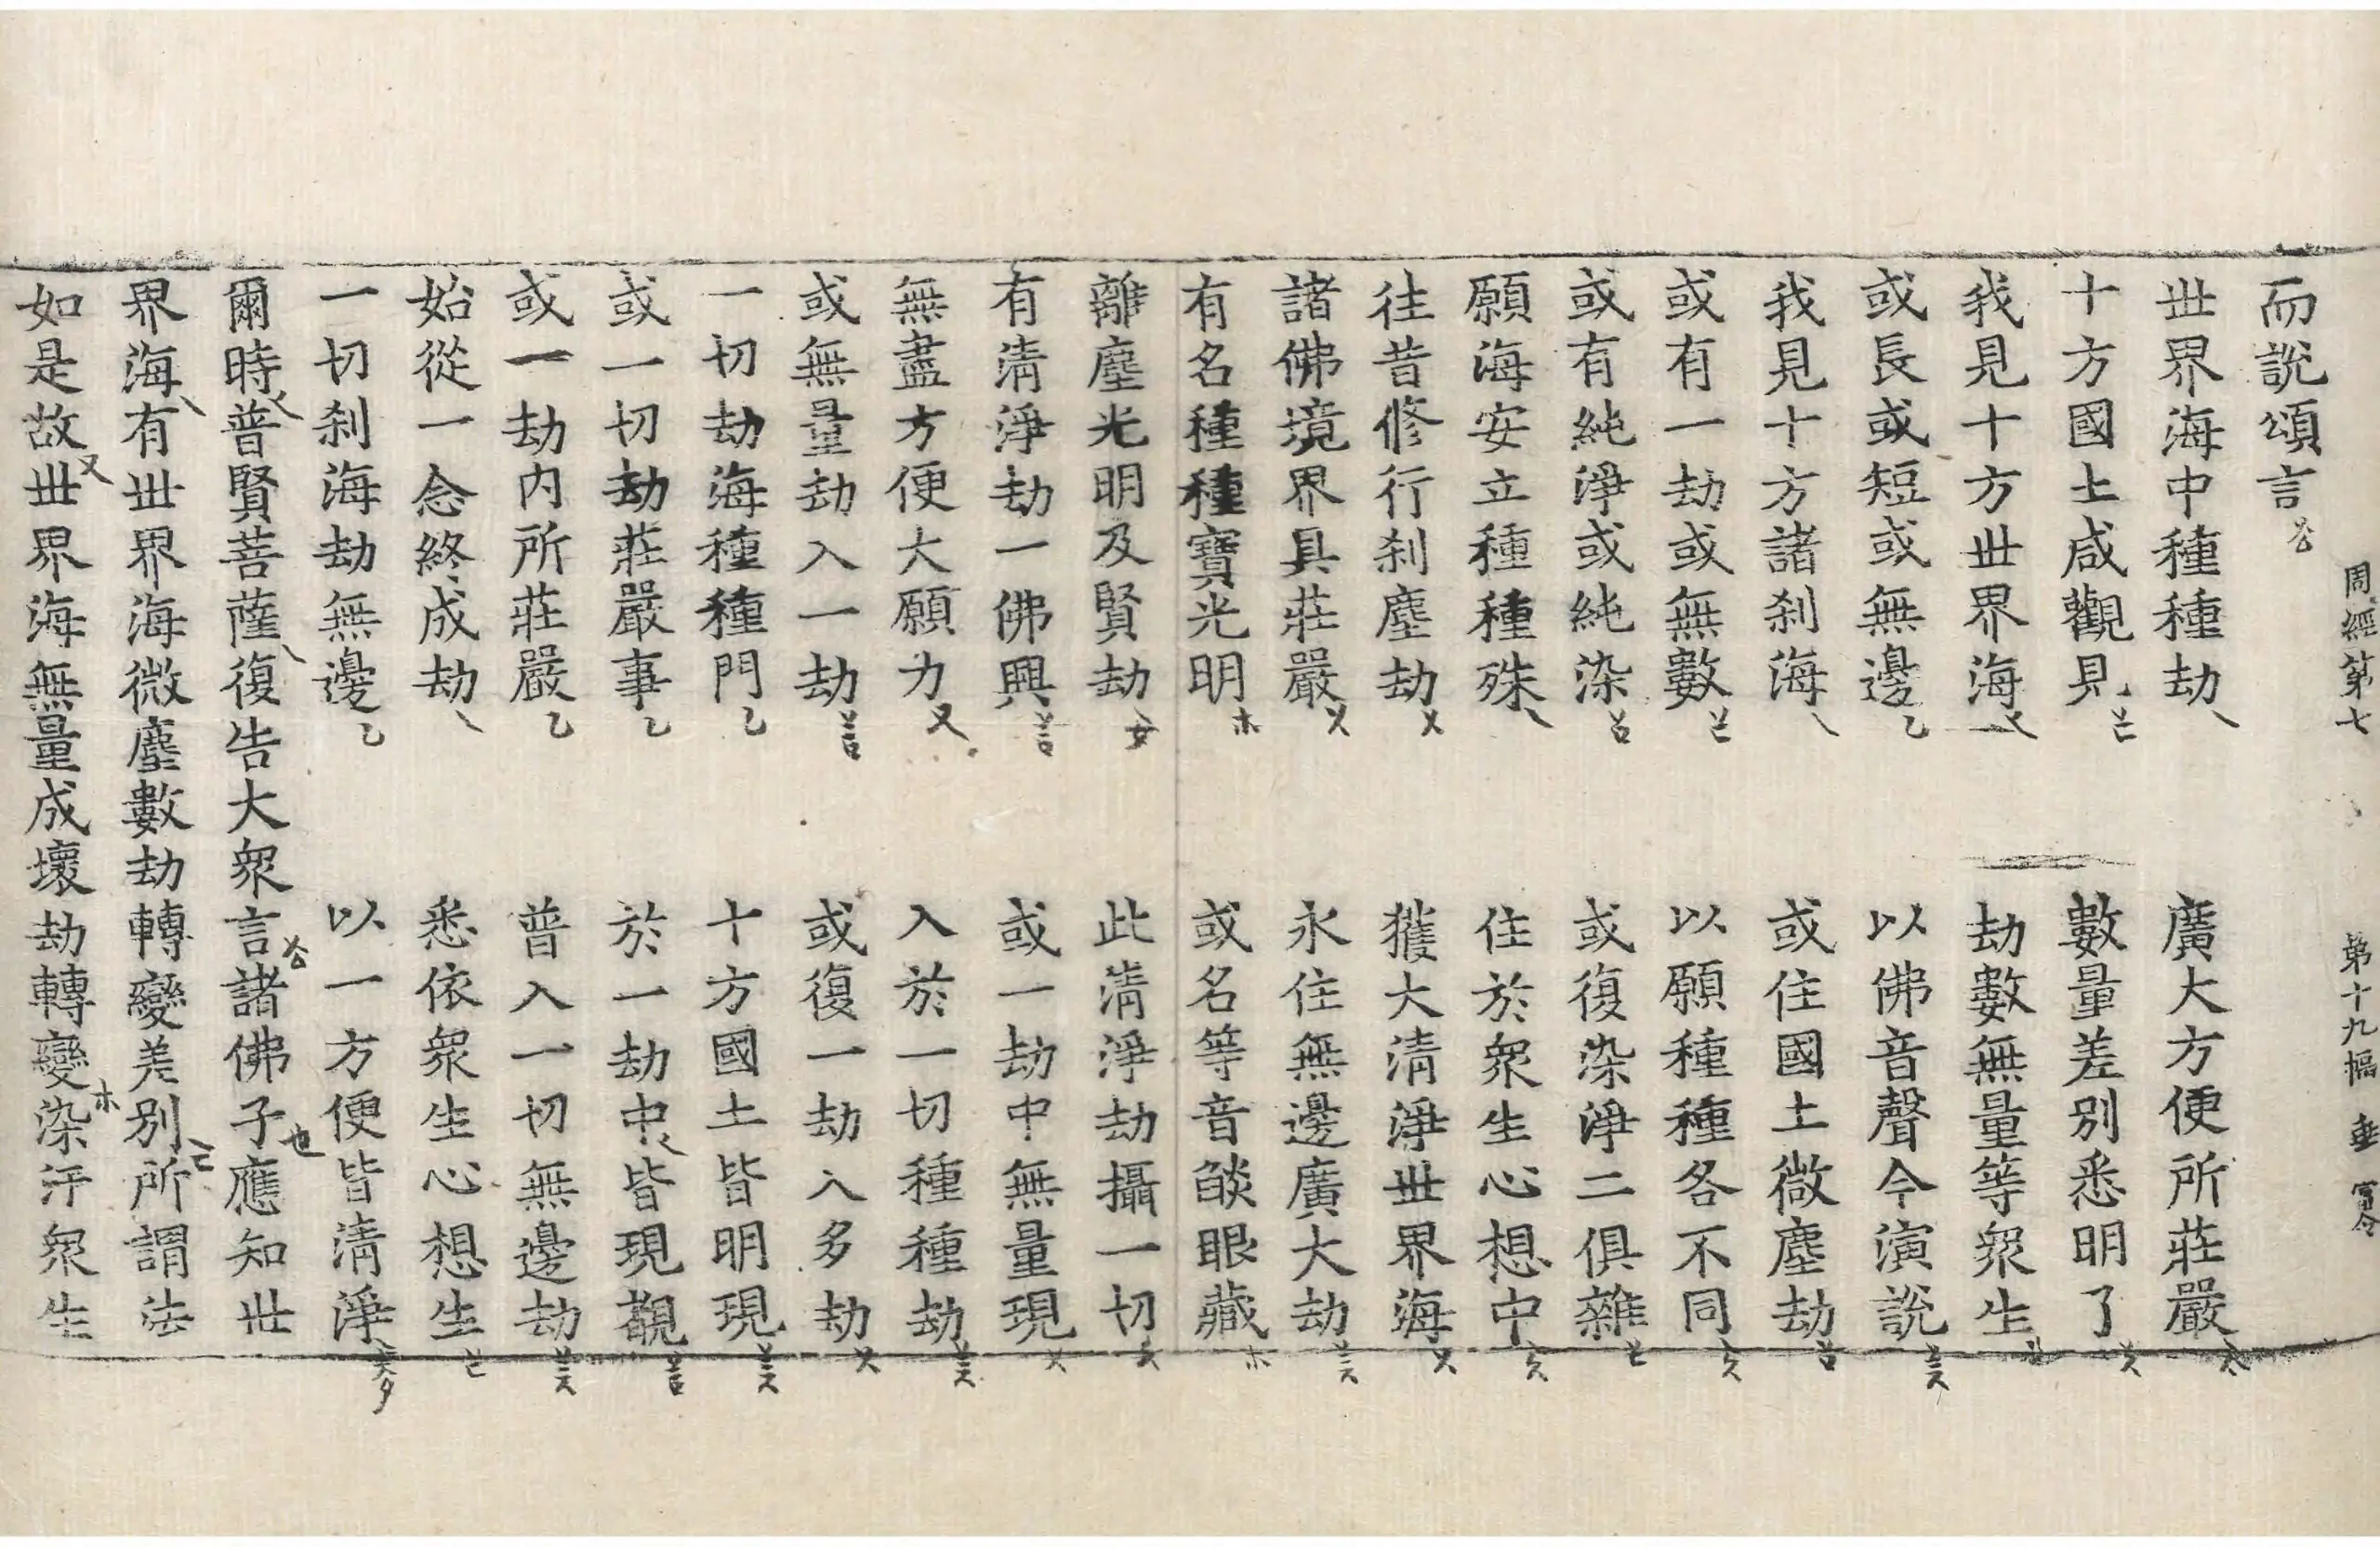 周經第七 第十九幅
而說頌言
世界海中種種劫 廣大方便所莊嚴
十方國土咸觀見 數量差別悉明了
我見十方世界海 劫數無量等衆生
或長或短或無邊 以佛音聲今演說
我見十方諸刹海 或住國土微塵劫
或有一劫或無數 以願種種各不同
或有純淨或純染 或復染淨二俱雜
願海安立種種殊 住於衆生心想中
往昔修行刹塵劫 獲大清淨世界海
諸佛境界具莊嚴 永住無邊廣大劫
有名種種寶光明 或名等音燄眼藏
離塵光明及賢劫 此清淨劫攝一切
有清淨劫一佛興 或一劫中無量現
無盡方便大願力 入於一切種種劫
或無量劫入一劫 或復一劫入多劫
一切劫海種種門 十方國土皆明現
或一切劫莊嚴事 於一劫中皆現覩
或一劫內所莊嚴 普入一切無邊劫
始從一念終成劫 悉依衆生心想生
一切刹海劫無邊 以一方便皆清淨
爾時普賢菩薩復告大衆言諸佛子應知世
界海有世界海微塵數劫轉變差別所謂法
如是故世界海無量成壞劫轉變染汙衆生